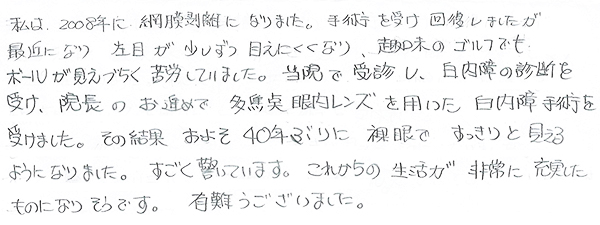 私は、2008年に 網膜剥離に なりました。手術を受け 回復しましたが
最近になり 左目が 少しずつ 見えにくくなり、趣味のゴルフでも
ボールが見えづらく 苦労していました。当院で受診し、白内障の診断を
受け、院長の お進めで 多焦点眼内レンズを用いた 白内障手術を
受けました。その結果 およそ 40年ぶりに 裸眼で すっきりと見える
ようになりました。すごく驚いています。これからの生活が 非常に充実した
ものになりそうです。 有難うございました。